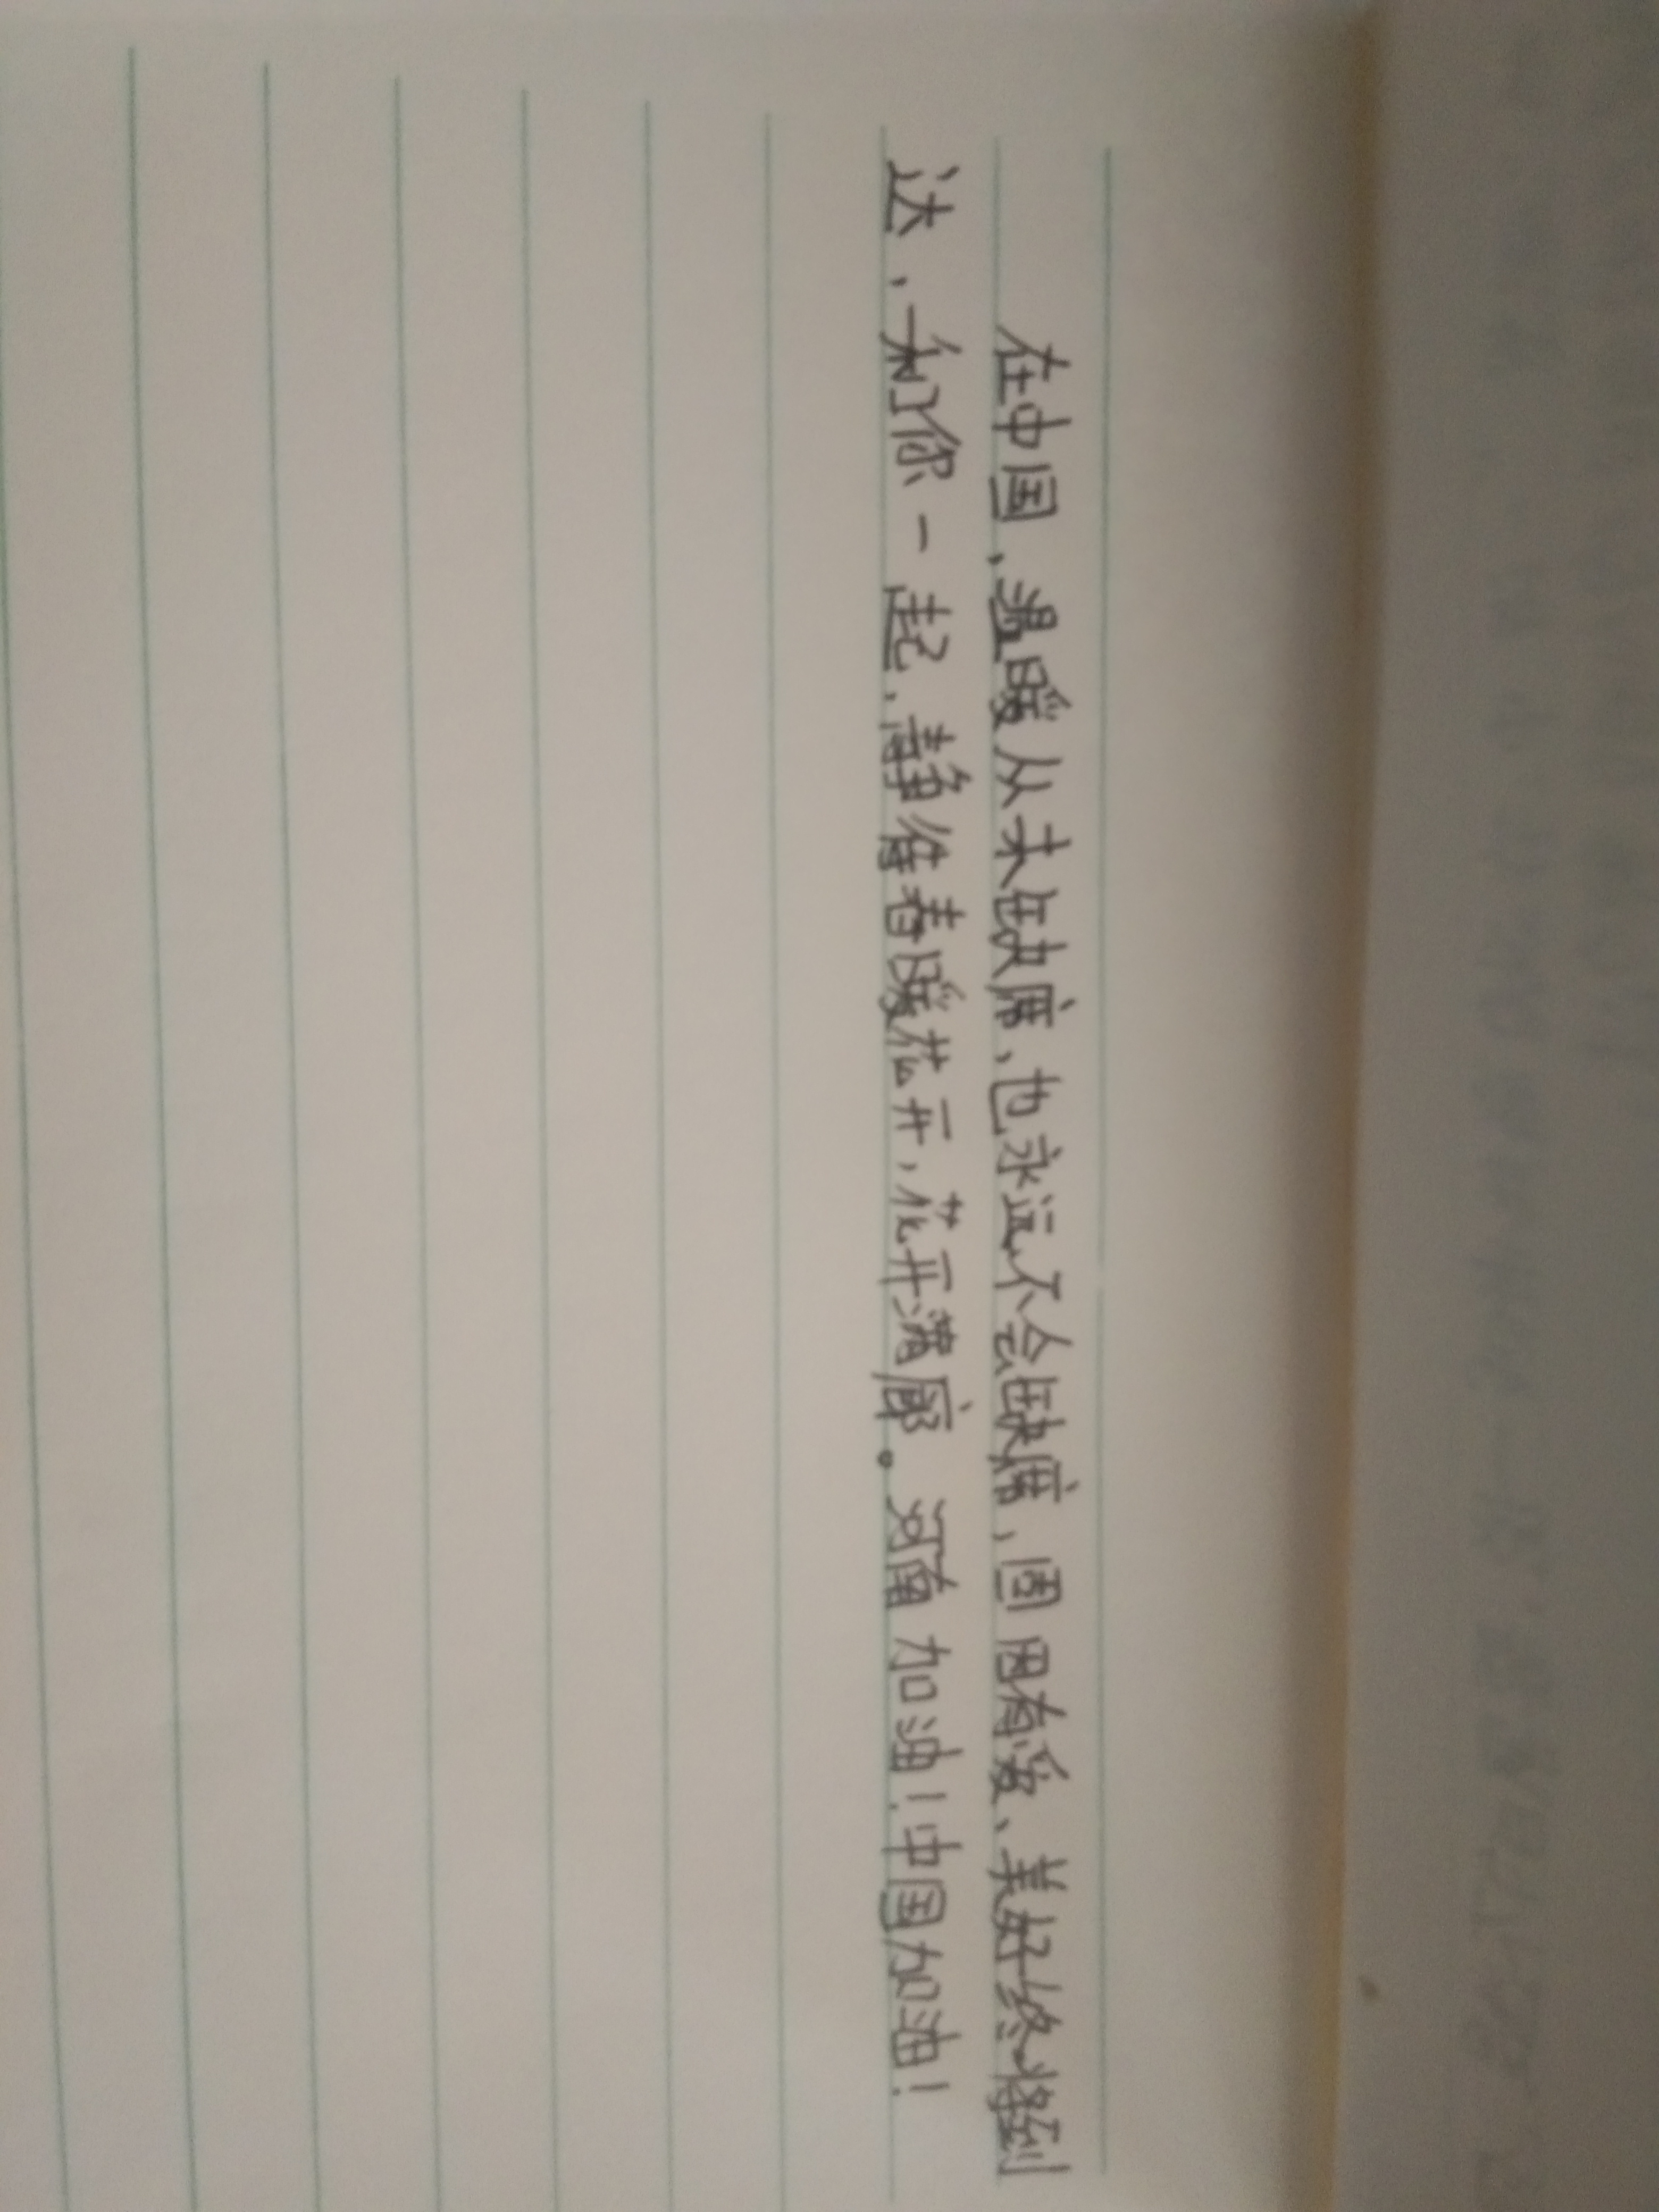 在中国，温暖从未缺席、也永远不会缺席，固因有爱、美好终将到
达，和你一起，静待春暖花开，花开满廊。河南加油！中国加油！